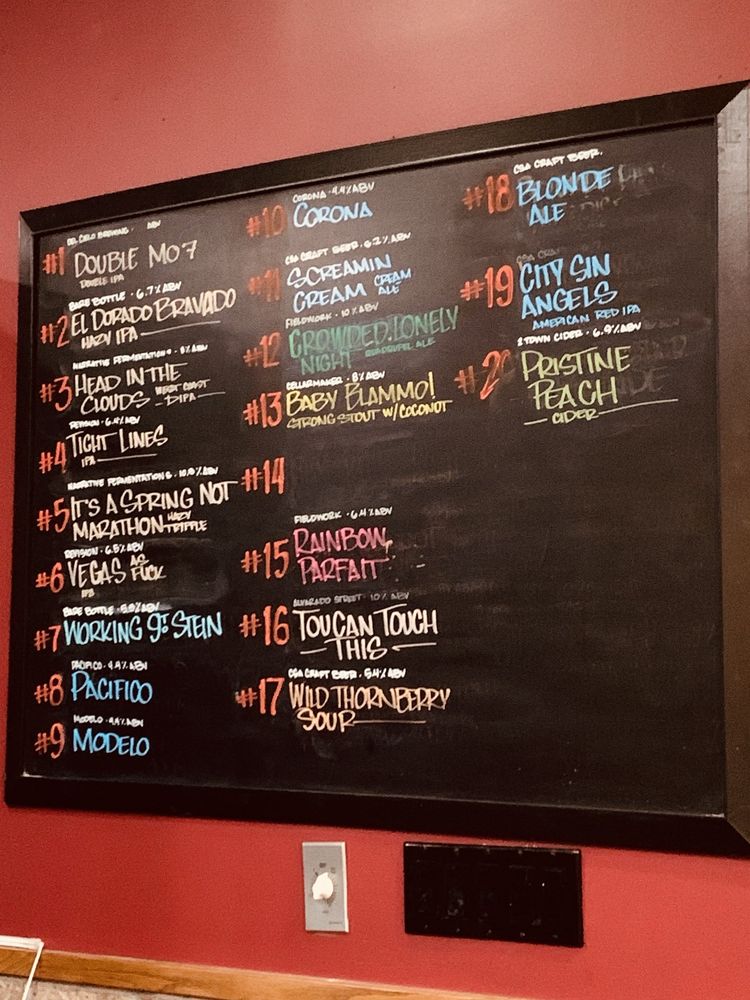 #1
DEL CIELO BREWING · ABV
DOUBLE MO7
DOUBLE IPA
#2
BARE BOTTLE · 6.7% ABV
EL DORADO BRAVADO
HAZY IPA
#3
NARRATIVE FERMENTATIONS · 8% ABV
HEAD IN THE
CLOUDS WEST COAST
DIPA
#4
REVISION · ABV
TIGHT LINES
IPA
#5
NARRATIVE FERMENTATIONS · ABV
IT'S A SPRING NOT
MARATHON HAZY
TRIPPLE
#6
REVISION · 6.5% ABV
VEGAS AS
FUCK
IPA
#7
BARE BOTTLE · ABV
WORKING 9-5 STEIN
#8
PACIFICO · 4.4% ABV
PACIFICO
#9
MODELO · 4.4% ABV
MODELO
#10
CORONA · 4.4% ABV
CORONA
#11
CSA CRAFT BEER · 6.2% ABV
SCREAMIN
CREAM CREAM
ALE
#12
FIELDWORK · 10% ABV
CROWDED.LONELY
NIGHT QUADRUPEL ALE
#13
CELLARMAKER · 8% ABV
BABY BLAMMO!
STRONG STOUT W/COCONUT
#14
#15
FIELDWORK · 6.4% ABV
RAINBOW
PARFAIT
#16
ALVARADO STREET · 10% ABV
TOUCAN TOUCH
THIS
#17
CSA CRAFT BEER · 5.4% ABV
WILD THORNBERRY
SOUR
#18
CSA CRAFT BEER.
BLONDE
ALE
#19
CSA CRAFT
CITY SIN
ANGELS
AMERICAN RED IPA
#20
2 TOWN CIDER · 6.9% ABV
PRISTINE
PEACH
CIDER